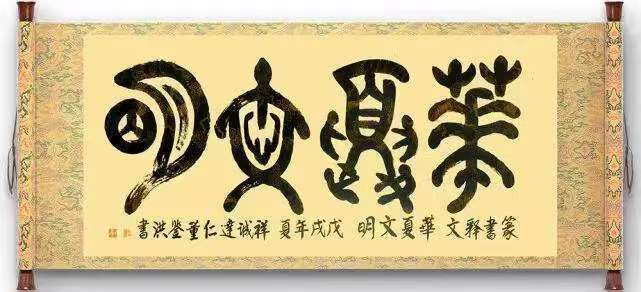 華夏文明
篆書釋文 華夏文明 戊戌年夏 祥诚達仁董鉴洪書